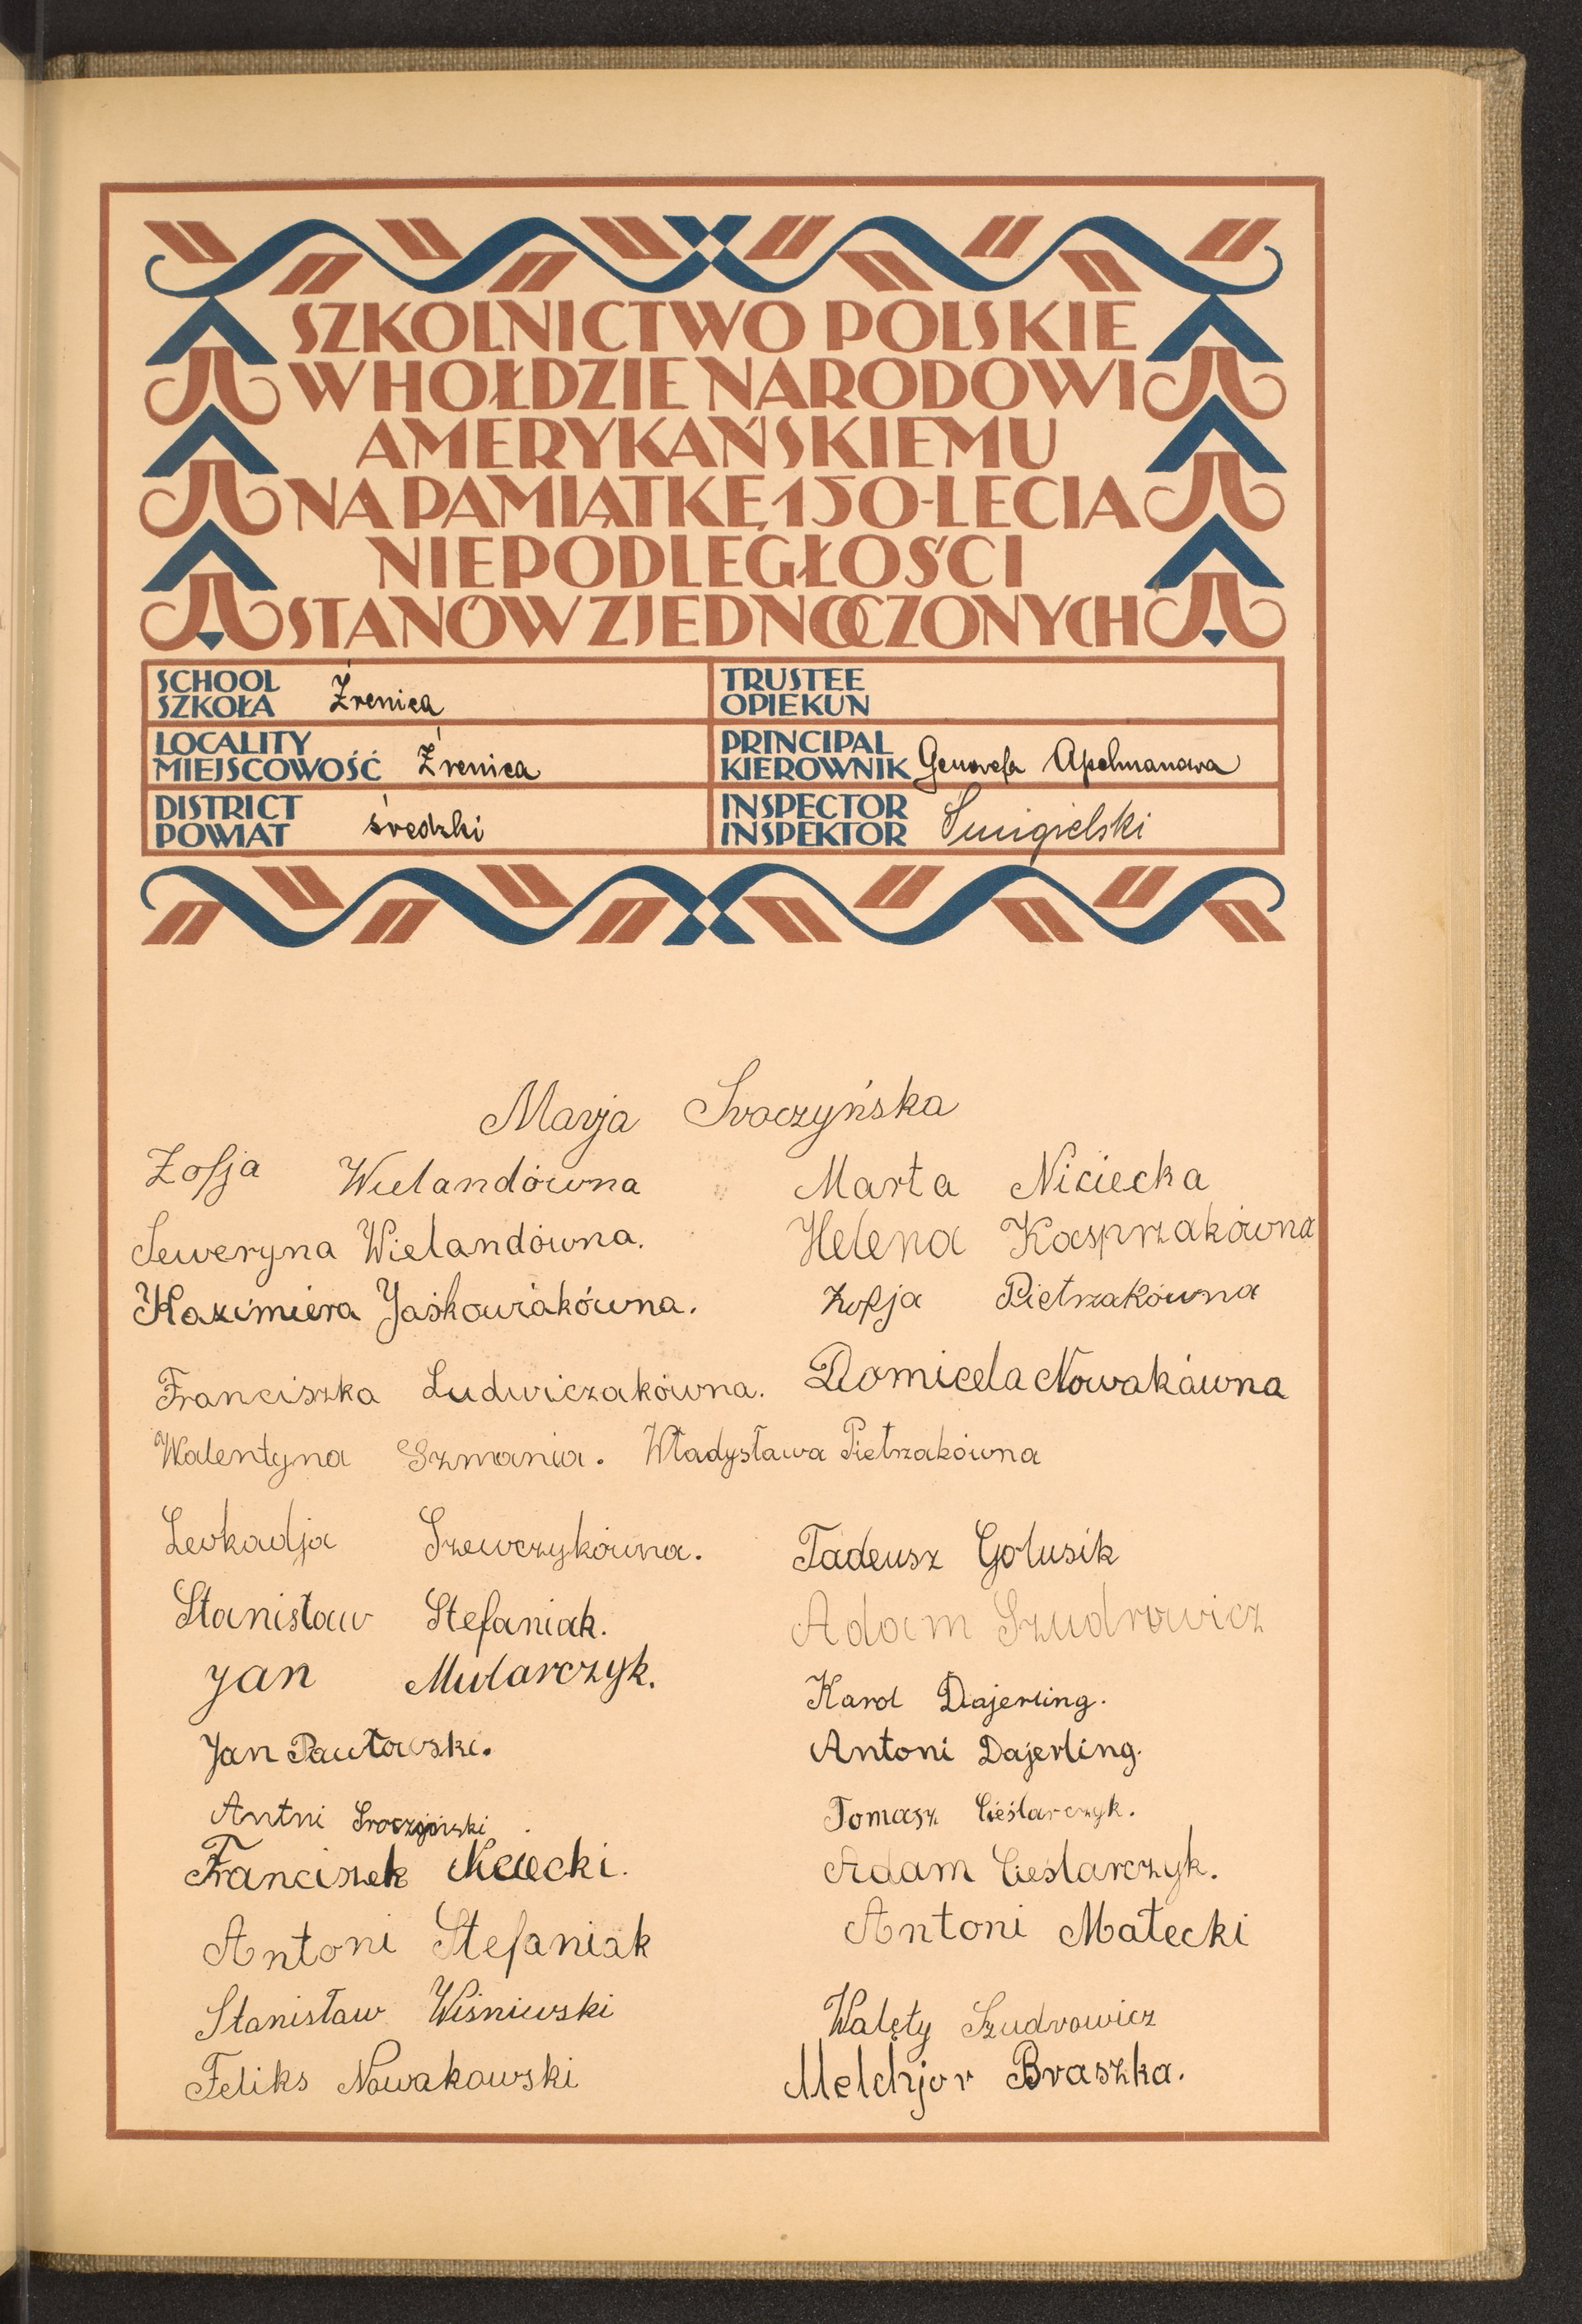 SZKOLNICTWO POLSKIE
W HOŁDZIE NARODOWI
AMERYKAŃSKIEMU
NA PAMIĄTKĘ 150-LECIA
NIEPODLEGŁOŚCI
STANÓW ZJEDNOCZONYCH
SCHOOL
SZKOŁA Źrenica
TRUSTEE
OPIEKUN
LOCALITY
MIEJSCOWOŚĆ Źrenica
PRINCIPAL
KIEROWNIK Genowefa Apelmanowa
DISTRICT
POWIAT średzki
INSPECTOR
INSPEKTOR Smigielski
Marja Sroczyńska
Zofja Wielandówna
Marta Niciecka
Seweryna Wielandówna.
Helena Kasprzakówna
Kazimiera Jaśkowiakówna.
Zofja Pietrzakówna
Franciszka Ludwiczakówna.
Domicela Nowakówna
Walentyna Szmania. Władysława Pietrzakówna
Leokadja Szewczykówna.
Tadeusz Golusik
Stanisław Stefaniak.
Adam Szudrowicz
Jan Mularczyk.
Karol Dajerling.
Jan Pawłowski.
Antoni Dajerling.
Antni Sroczyński
Tomasz Cieślarczyk.
Franciszek Niciecki.
Adam Cieslarczyk.
Antoni Stefaniak
Antoni Małecki
Stanisław Wiśniewski
Walęty Szudrowicz
Feliks Nowakowski
Melchjor Braszka.